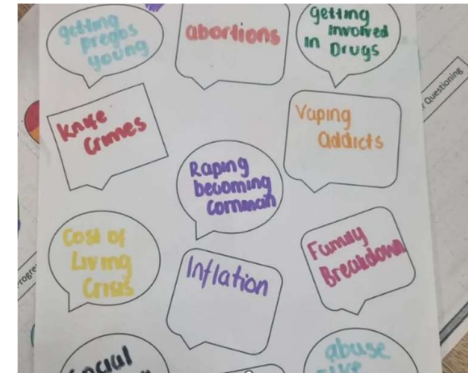 getting
pregos
young
abortions
getting
involved
in Drugs
Knife
Crimes
Vaping
Addicts
Raping
becoming
common
Cost of
Living
Crisis
Inflation
Family
Breakdown
abuse
Questioning